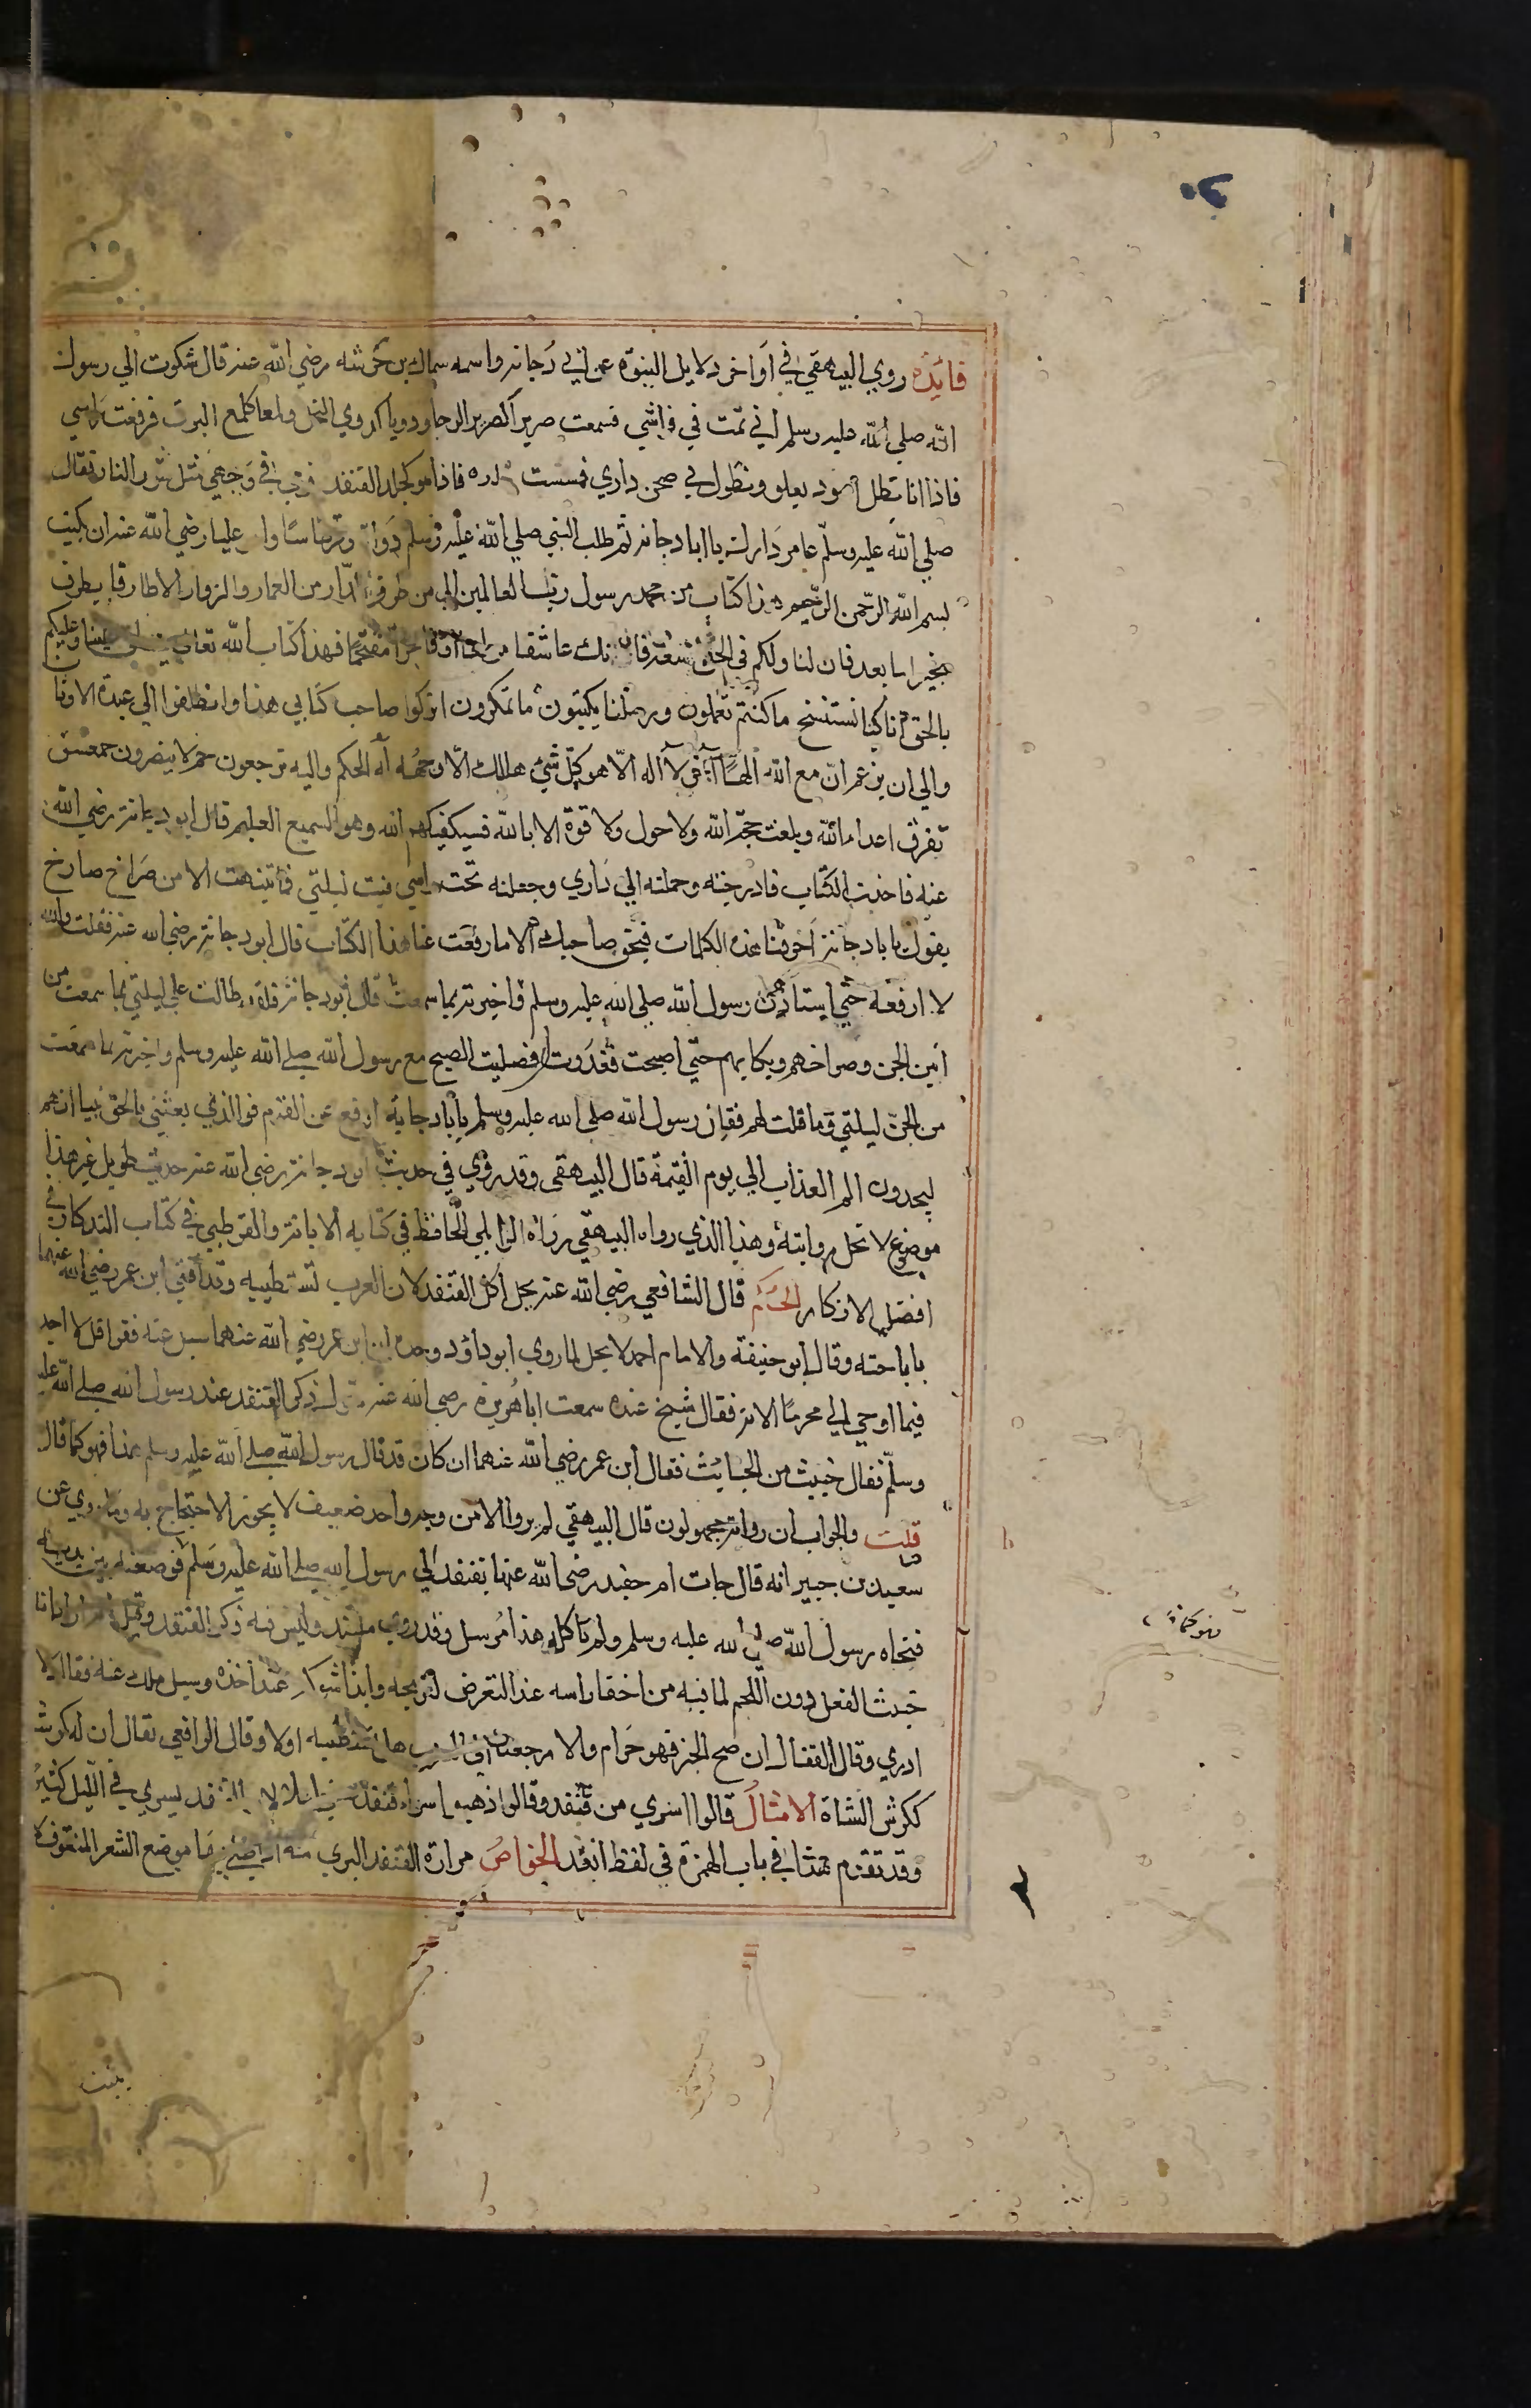 فايدة روي البيهقي في آواخر دلايل النبوة عن ابي دجانه واسمه سماك بن خرشه رضي الله عنه قال شكوت الي رسول
الله صلي الله عليه وسلم اني نمت في فراشي فسمعت صريرا كصرير الرحا ودويا كدوي النحل ولمعا كلمع البرق فرفعت راسي
فاذا انا بظل اسود يعلو ويطول في صحن داري فمسست فاذا هو كجلد القنفد في وجهي مثل شرر النار فقال
صلي الله عليه وسلم عامر دارك يا ابا دجانه ثم طلب النبي صلي الله عليه وسلم دواة وقرطاسا عليا رضي الله عنه ان يكتب
بسم الله الرحمن الرحيم هذا كتاب من محمد رسول رب العالمين الي من طرق الدار من العمار والزوار الا طارقا يطرق
بخير اما بعد فان لنا ولكم في الحق سعة فان تك عاشقا فهذا كتاب الله تعالي ينطق علينا وعليكم
بالحق انا كنا نستنسخ ما كنتم تعملون ورسلنا يكتبون ما تمكرون اتركوا صاحب كتابي هذا وانطلقوا الي عبدة الاوثان
والي ان يزعم ان مع الله الها آخر لا اله الا هو كل شي هالك الا وجهه له الحكم واليه ترجعون حم لا ينصرون حمعسق
تفرق اعداء الله وبلغت حجة الله ولا حول ولا قوة الا بالله فسيكفيكهم الله وهو السميع العليم قال ابو دجانه رضي الله
عنه فاخذت الكتاب فادرجته وحملته الي داري وجعلته تحت راسي فبت ليلتي فما انتبهت الا من صراخ صارخ
يقول يا ابا دجانه احرقتنا بهذه الكلمات فبحق صاحبك الا ما رفعت عنا هذا الكتاب قال ابو دجانه رضي الله عنه فقلت والله
لا ارفعه حتي استاذن رسول الله صلي الله عليه وسلم فاخبرته بما سمعت قال ابو دجانه فلقد طالت علي ليلتي بما سمعت من
انين الجن وصراخهم وبكايهم حتي اصبحت فغدوت فصليت الصبح مع رسول الله صلي الله عليه وسلم واخبرته بما سمعت
من الجن ليلتي وما قلت لهم فقال رسول الله صلي الله عليه وسلم يا ابا دجانه ارفع عن القوم فوالذي بعثني بالحق نبيا انهم
ليجدون الم العذاب الي يوم القيمة قال البيهقي وقد روي في حديث ابو دجانه رضي الله عنه حديث طويل غير هذا
موضوع لا تحل روايته وهذا الذي رواه البيهقي رواه الوايلي الحافظ في كتابه الابانة والقرطبي في كتاب التذكار في
افضل الاذكار الحكم قال الشافعي رضي الله عنه يحل اكل القنفد لان العرب تستطيبه وقد افتي ابن عمر رضي الله عنهما
باباحته وقال ابو حنيفة والامام احمد لا يحل لما روي ابو داود وحده ان ابن عمر رضي الله عنهما سيل عنه فقرا قل لا اجد
فيما اوحي الي محرما الاية فقال شيخ عنده سمعت ابا هريرة رضي الله عنه يقول ذكر القنفد عند رسول الله صلي الله عليه
وسلم فقال خبيث من الخبايث فقال ابن عمر رضي الله عنهما ان كان قد قال رسول الله صلي الله عليه وسلم هذا فهو كما قال
قلت والجواب ان رواته مجهولون قال البيهقي لم يروالا من وجه واحد ضعيف لا يجوز الاحتجاج به وما روي عن
سعيد بن جبير انه قال جات ام حفيد رضي الله عنها بقنفد الي رسول الله صلي الله عليه وسلم فوضعته بين يديه
فنحاه رسول الله صلي الله عليه وسلم ولم ياكله هذا مرسل وقد روي مسند وليس فيه ذكر القنفد وقيل
خبث الفعل دون اللحم لما فيه من اخفا راسه عند التعرض لذبحه عند اخذه وسيل ملك عنه فقال لا
ادري وقال القفال ان صح الخبر فهو حرام والا رجعنا هل تستطيبه اولا وقال الرافعي يقال ان له كرشا
ككرش الشاة الامثال قالوا اسري من قنفد وقالوا ذهبوا اسراء قنفد يسري في الليل كثير
وقد تقدم مثله في باب الهمزة في لفظ انقد الخواص مرارة القنفد البري موضع الشعر المنتوف